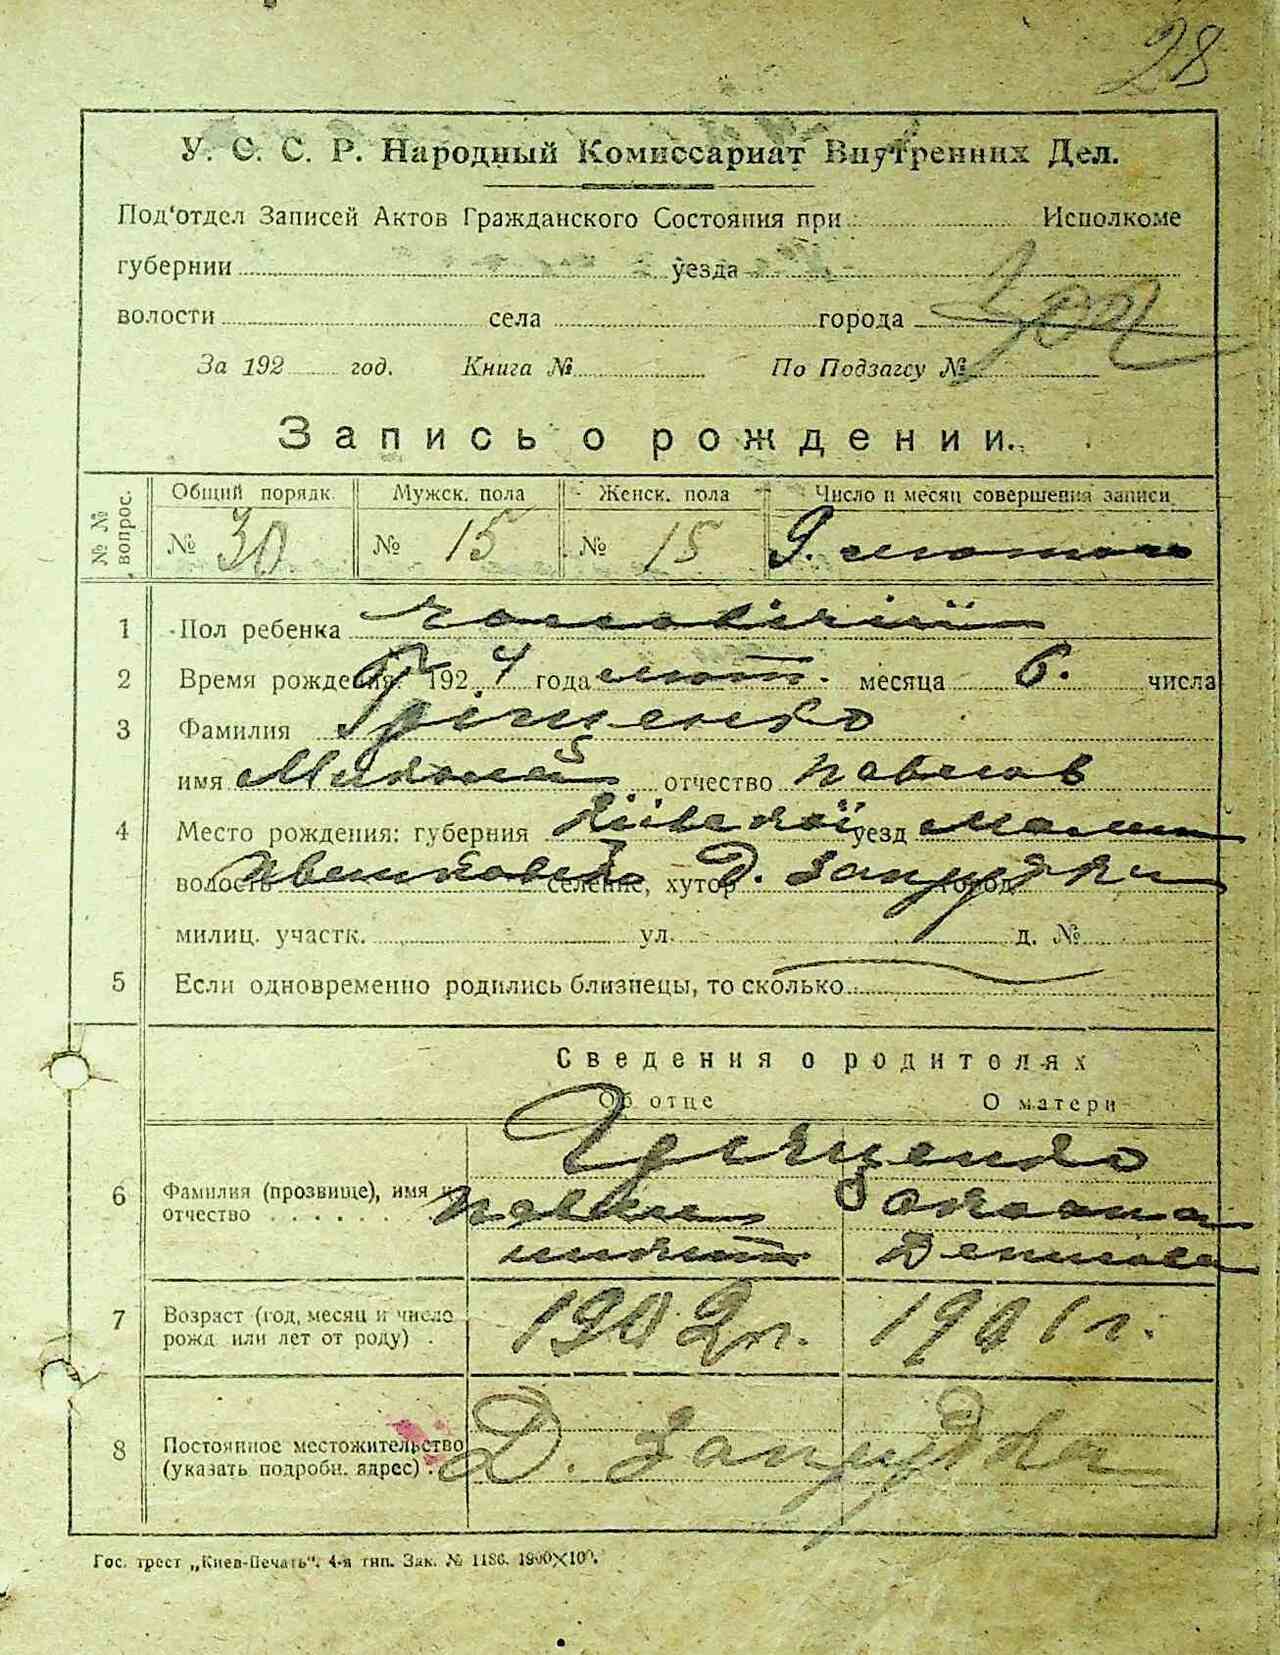 28
У. С. С. Р. Народный Комиссариат Внутренних Дел.
Под'отдел Записей Актов Гражданского Состояния при Исполкоме
губернии уезда
волости села города
За 192 год. Книга № По Подзагсу №
Запись о рождении.
№ № вопрос. Общий порядк. Мужск. пола Женск. пола Число и месяц совершения записи
№ 30 № 15 № 15 9. лютого
1 Пол ребенка чоловічий
2 Время рождения: 1924 года лют. месяца 6. числа
3 Фамилия Гріщенко
имя Миколай отчество Павлов
4 Место рождения: губерния Київскої уезд Малин
волость селение, хутор Д. Запрудка город
милиц. участк. ул. д. №
5 Если одновременно родились близнецы, то сколько
Сведения о родителях
Об отце О матери
6 Фамилия (прозвище), имя и отчество Грищенко
Павло
Денисова
7 Возраст (год, месяц и число рожд. или лет от роду) 1902 г. 1901 г.
8 Постоянное местожительство (указать подробн. адрес) Д. Запрудка
Гос. трест „Киев-Печать". 4-я тип. Зак. № 1186. 1900×100.